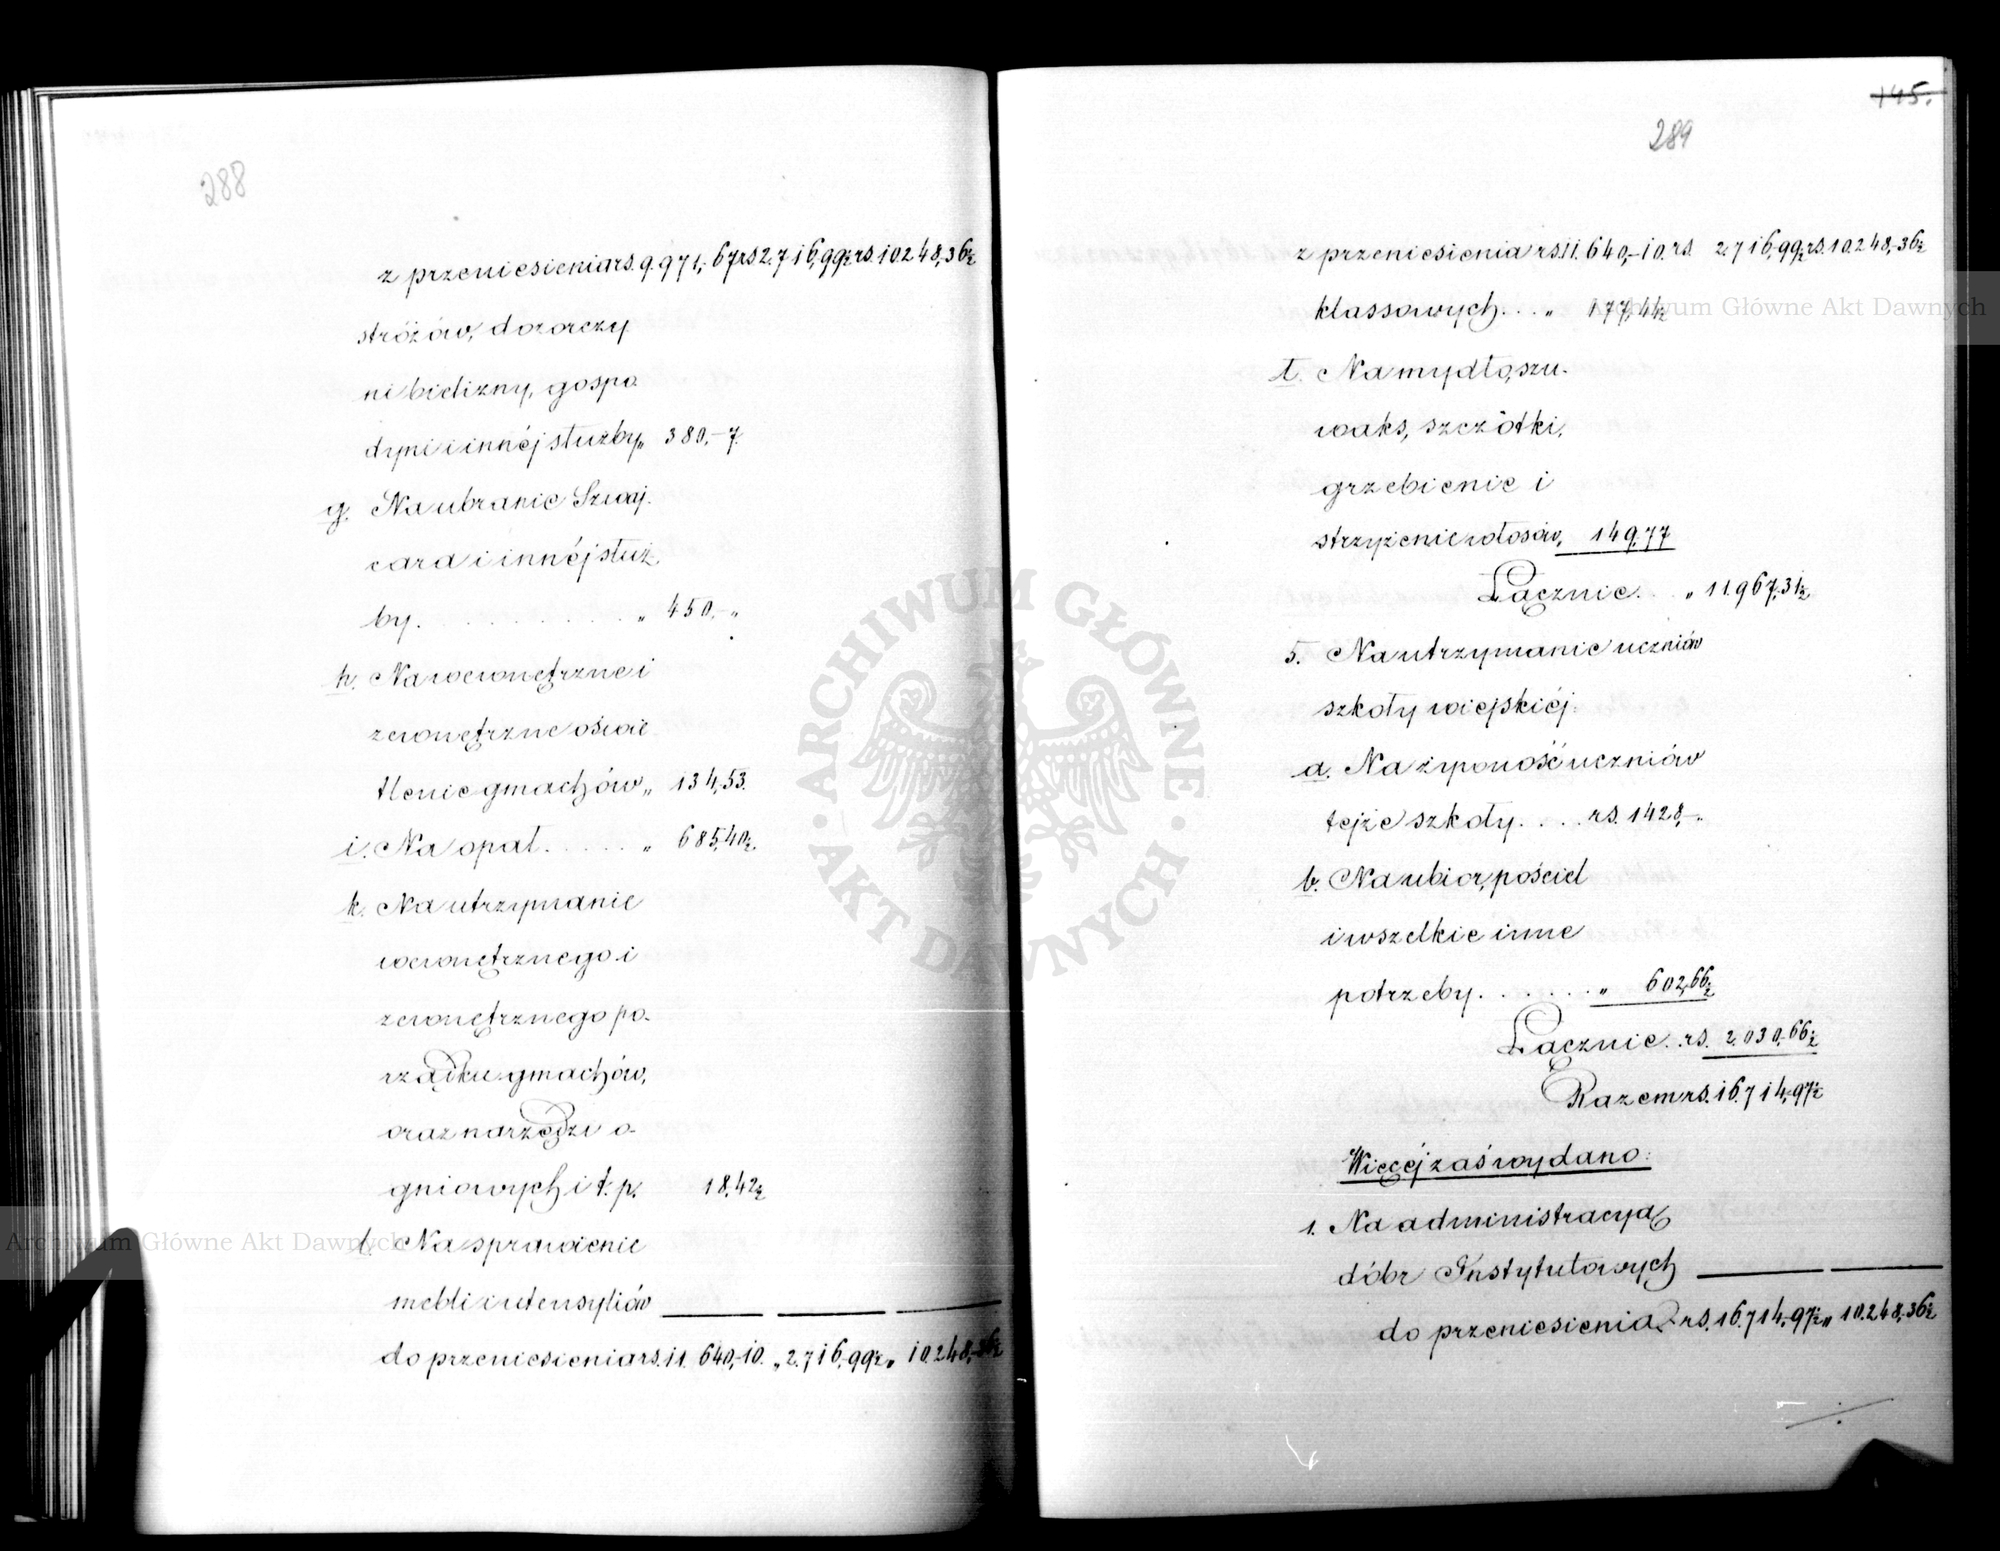 288
z przeniesienia rs. 9.971,-67 rs 2.716,99½ rs. 10.248,36½
stróżów, dozorczy
ni bielizny, gospo
dyni i innéj służby „ 380,-7.
g. Na ubranie Szwaj.
cara i innéj służ
by. . . . . . . . . . . . „ 450,-„
h. Na wewnętrzne i
zewnętrzne oświe
tlenie gmachów „ 134,53.
i. Na opał. . . . . . „ 685,40½.
k. Na utrzymanie
wewnętrznego i
zewnętrznego po-
rządku gmachów,
oraz narzędzi o-
gniowych i t. p. 18,42½
l. Na sprawienie
mebli i utensyliów
do przeniesienia rs. 11.640,-10. „ 2.716,-99½ „ 10.248,-36½
145.
289
z przeniesienia rs. 11.640,-10. rs. 2.716,-99½ rs. 10.248,-36½
klassowych. . . . „ 177,44½
ł. Na mydło, szu-
waks, szczótki,
grzebienie i
strzyżenie włosów, 149,77
Łącznie. . . „ 11.967,31½
5. Na utrzymanie uczniów
szkoły wiejskiéj.
a. Na żywność uczniów
tejże szkoły. . . . rs. 1428,-„
b. Na ubior, pościel
i wszelkie inne
potrzeby. . . . . . . „ 602,66½
Łącznie. rs. 2.030,-66½
Razem rs. 16.714,-97½
Więcéj zaś wydano:
1. Na administracyą
dóbr Instytutowych
do przeniesienia rs. 16.714,-97½ „ 10.248,-36½
ARCHIWUM GŁÓWNE AKT DAWNYCH
Archiwum Główne Akt Dawnych
Archiwum Główne Akt Dawnych